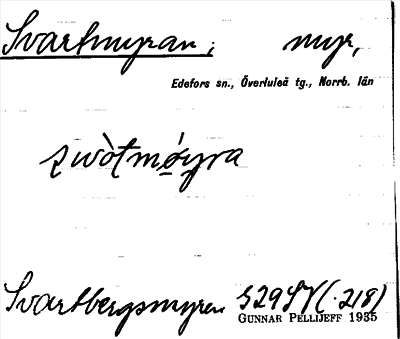 Svartmyran; myr,
Edefors sn., Överluleå tg., Norrb. län
zwòtmøyra
Svartbergsmyren S29SV(·218)
GUNNAR PELLIJEFF 1935